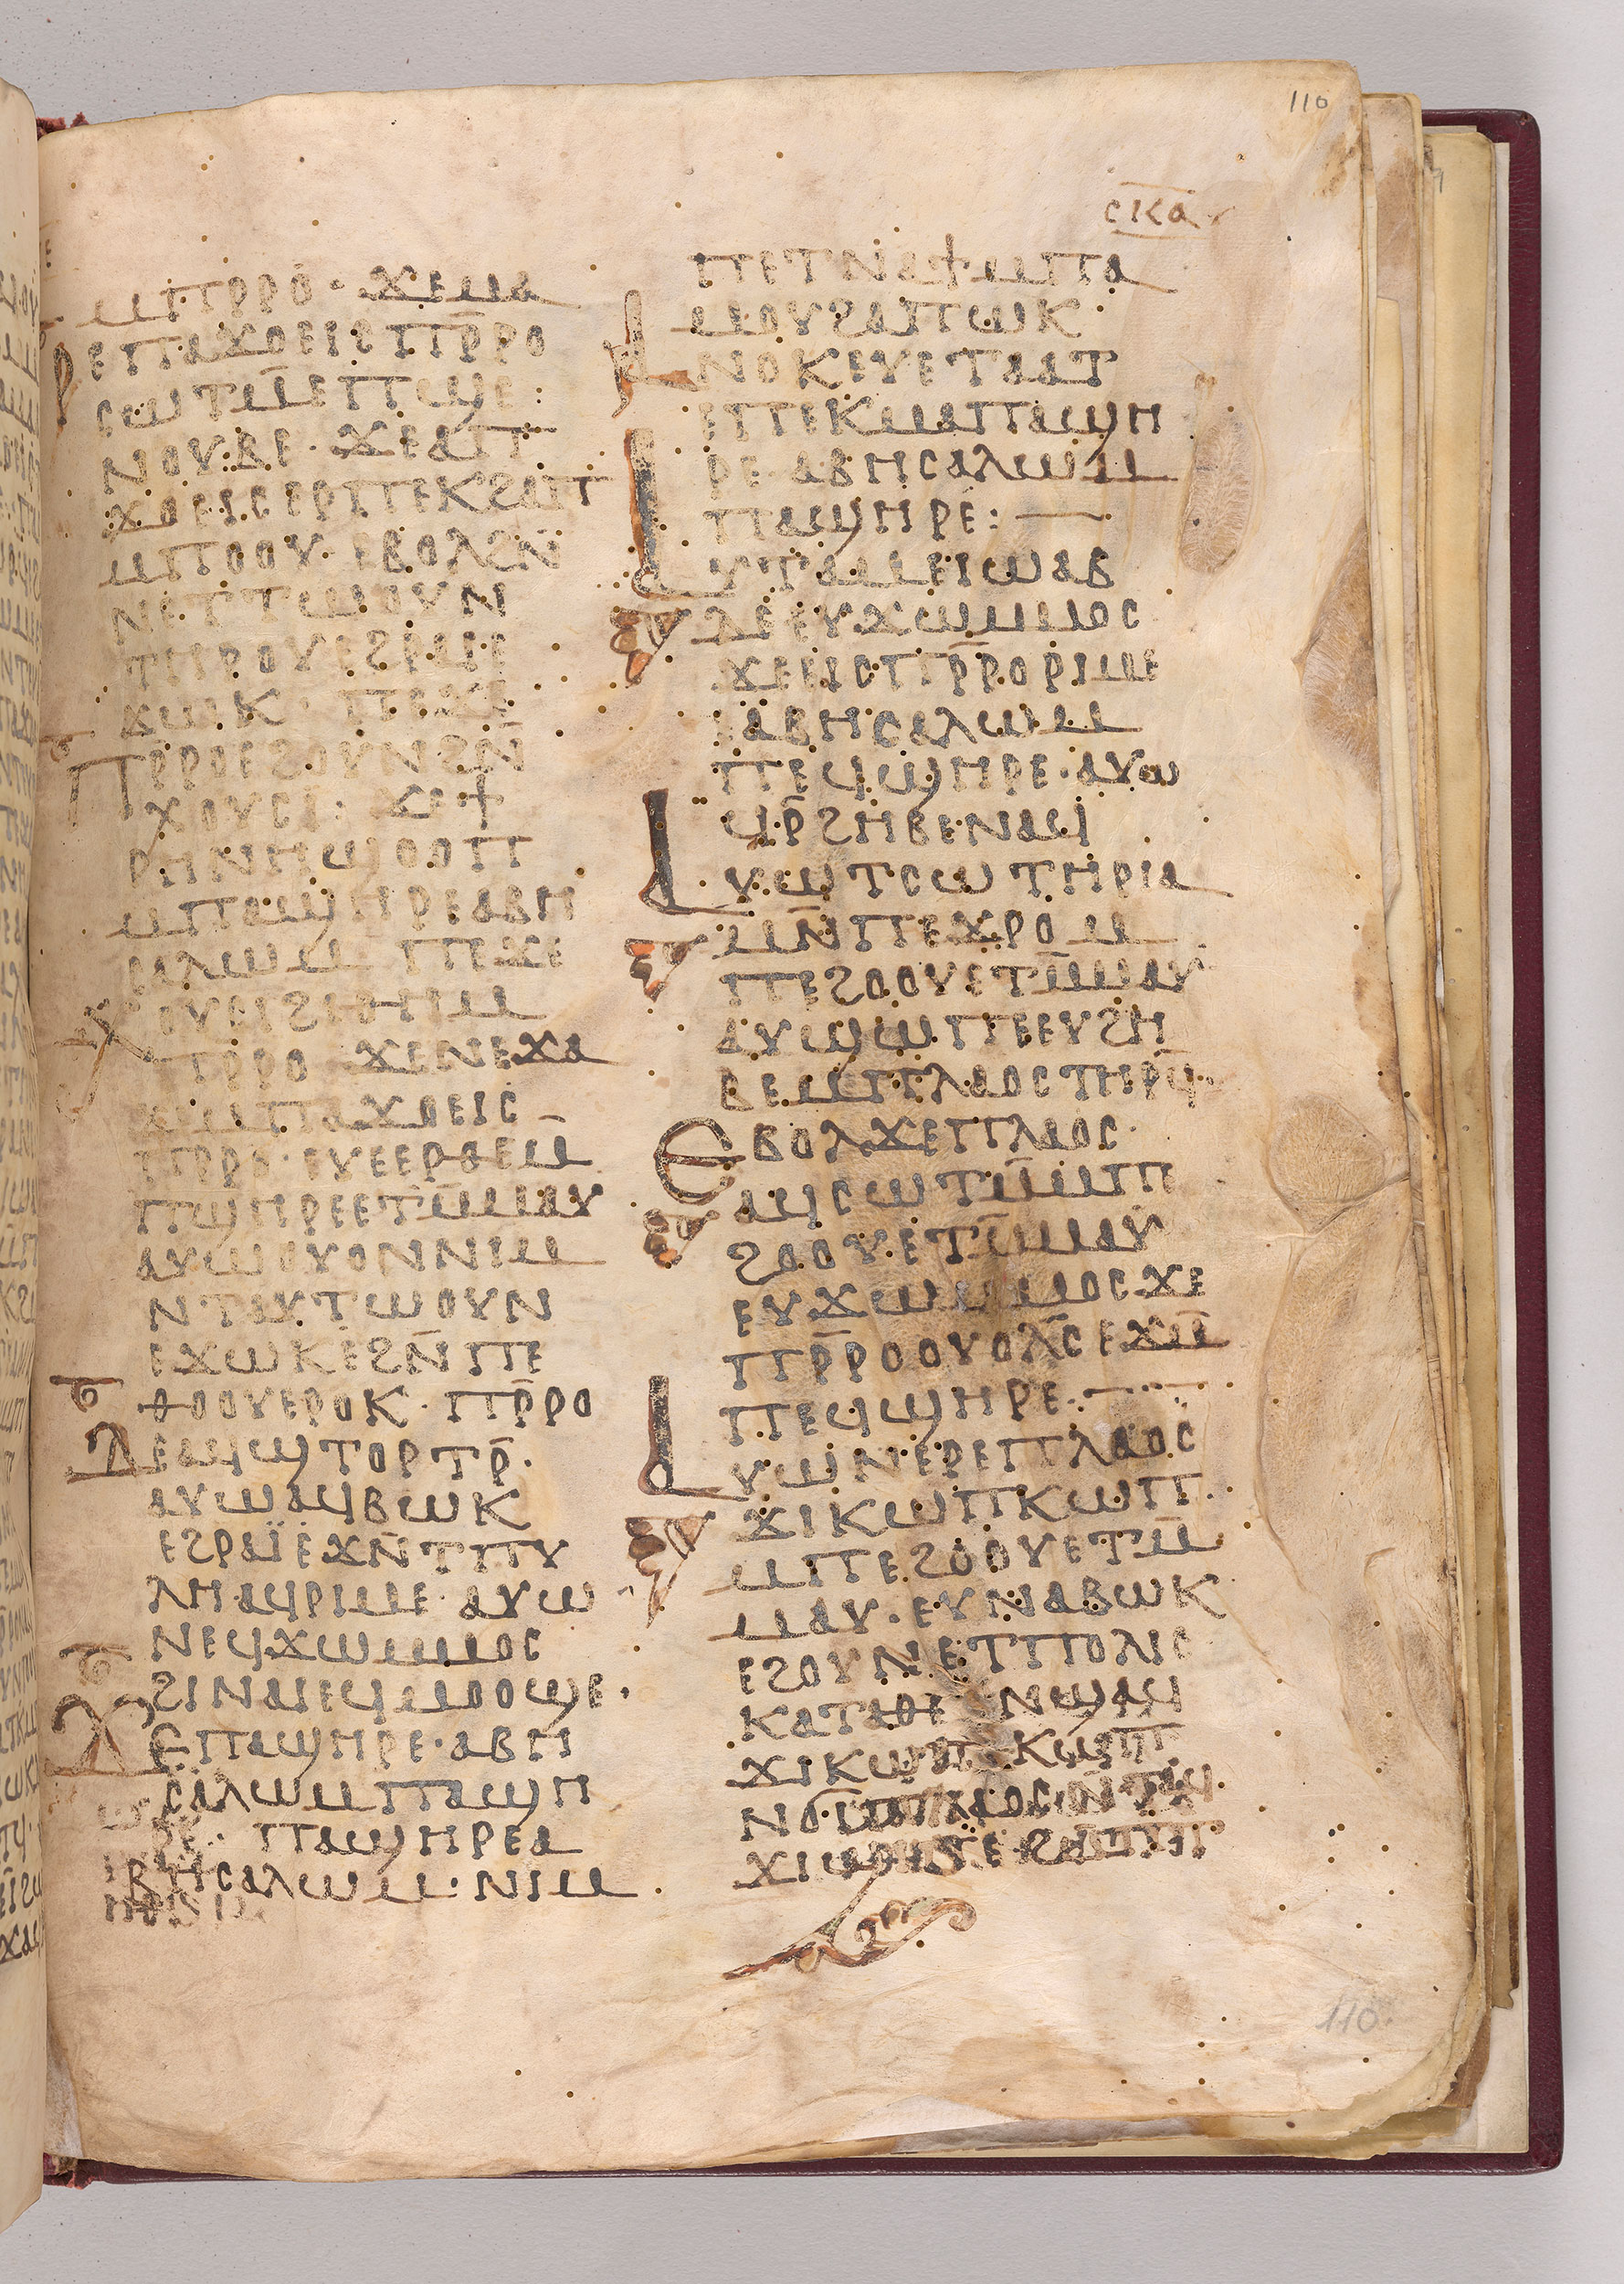 110
ⲥⲕⲁ
ⲙⲡⲣⲣⲟ· ϫⲉⲙⲁ
ⲣⲉⲡⲁϫⲟⲉⲓⲥ ⲡⲣ̄ⲣⲟ
ⲥⲱⲧⲙ̄ ⲉⲡϣⲉ
ⲛⲟⲩϥⲉ· ϫⲉⲁⲡ
ϫⲟⲉⲓⲥ ⲉⲣ ⲡⲉⲕϩⲁⲡ
ⲙⲡⲟⲟⲩ ⲉⲃⲟⲗϩⲛ̄
ⲛⲉⲧⲧⲱⲟⲩⲛ
ⲧⲏⲣⲟⲩ ⲉϩⲣⲁⲓ ⲉ
ϫⲱⲕ· ⲡⲉϫⲉ
ⲡⲣⲣⲟ ⲉϩⲟⲩⲛ ϩⲛ̄
ⲭⲟⲩⲥⲓ: ϫⲉϯ
ⲣⲏⲛⲏ ϣⲟⲟⲡ
ⲙⲡⲁϣⲏⲣⲉ ⲁⲃⲏ
ⲥⲁⲗⲱⲙ ⲡⲉϫⲉ
ⲭⲟⲩⲥⲓ
ⲡⲣⲣⲟ ϫⲉⲛⲉϫⲁ
ϫⲉ ⲙⲡⲁϫⲟⲉⲓⲥ
ⲡⲣⲣⲟ· ⲉⲩⲉⲉⲣⲑⲉ ⲙ̄
ⲡϣⲏⲣⲉ ⲉⲧⲙ̄ⲙⲁⲩ
ⲁⲩⲱ ⲟⲩⲟⲛ ⲛⲓⲙ
ⲛⲧⲁⲩⲧⲱⲟⲩⲛ
ⲉϫⲱⲕ ⲉϩⲛ̄ⲡⲉ
ⲑⲟⲟⲩ ⲉⲣⲟⲕ· ⲡⲣ̄ⲣⲟ
ⲇⲉ ⲁϥϣⲧⲟⲣⲧⲣ̄·
ⲁⲩⲱ ⲁϥⲃⲱⲕ
ⲉϩⲣⲁⲓ̈ ⲉϫⲛ̄ⲧⲡⲩ
ⲗⲏ ⲁϥⲣⲓⲙⲉ· ⲁⲩⲱ
ⲛⲉϥϫⲱ ⲙⲙⲟⲥ
ϩⲓⲛⲁⲓ ⲉϥⲙⲟⲟϣⲉ·
ϫⲉ ⲡⲁϣⲏⲣⲉ· ⲁⲃⲏ
ⲥⲁⲗⲱⲙ ⲡⲁϣⲏ
ⲣⲉ· ⲡⲁϣⲏⲣⲉ ⲁ
ⲃⲏⲥⲁⲗⲱⲙ· ⲛⲓⲙ
ⲡⲉⲧⲛⲁϯ ⲙⲡⲁ
ⲙⲟⲩ ϩⲁⲡⲱⲕ·
ⲁⲛⲟⲕ ⲉⲩⲉⲧⲁⲁⲧ
ⲉⲡⲉⲕⲙⲁ ⲡⲁϣⲏ
ⲣⲉ ⲁⲃⲏⲥⲁⲗⲱⲙ
ⲡⲁϣⲏⲣⲉ: —
ⲁⲩⲧⲁⲙⲉ ⲓⲱⲁⲃ
ⲇⲉ ⲉⲩϫⲱ ⲙⲙⲟⲥ
ϫⲉ ⲉⲓⲥ ⲡⲣ̄ⲣⲟ ⲣⲓⲙⲉ
ⲉⲁⲃⲏⲥⲁⲗⲱⲙ
ⲡⲉϥϣⲏⲣⲉ· ⲁⲩⲱ
ϥⲣ̄ϩⲏⲃⲉ ⲛⲁϥ
ⲁⲩⲱ ⲧⲥⲱⲧⲏⲣⲓⲁ
ⲙⲛ̄ ⲡⲉϫⲣⲟ ⲙ
ⲡⲉϩⲟⲟⲩ ⲉⲧⲙ̄ⲙⲁⲩ
ⲁⲩϣⲱⲡⲉ ⲉⲩϩⲏ
ⲃⲉ ⲙⲡⲗⲁⲟⲥ ⲧⲏⲣϥ̄·
ⲉⲃⲟⲗ ϫⲉ ⲡⲗⲁⲟⲥ·
ⲁϥⲥⲱⲧⲙ̄ ⲙⲡⲉ
ϩⲟⲟⲩ ⲉⲧⲙ̄ⲙⲁⲩ
ⲉⲩϫⲱ ⲙⲙⲟⲥ ϫⲉ
ⲡⲣ̄ⲣⲟ ⲟⲩⲟⲗⲥ̄ ⲉϫⲙ̄
ⲡⲉϥϣⲏⲣⲉ·
ⲁⲩⲱ ⲛⲉⲣⲉ ⲡⲗⲁⲟⲥ
ϫⲓ ⲕⲱⲡ ⲕⲱⲡ·
ⲙⲡⲉϩⲟⲟⲩ ⲉⲧⲙ̄
ⲙⲁⲩ· ⲉⲩⲛⲁⲃⲱⲕ
ⲉϩⲟⲩⲛ ⲉⲧⲡⲟⲗⲓⲥ
ⲕⲁⲧⲁⲑⲉ ⲛϣⲁϥ
ϫⲓ ⲕⲱⲡ ⲕⲱⲡ
ⲛϭⲓ ⲡⲗⲁⲟⲥ
110